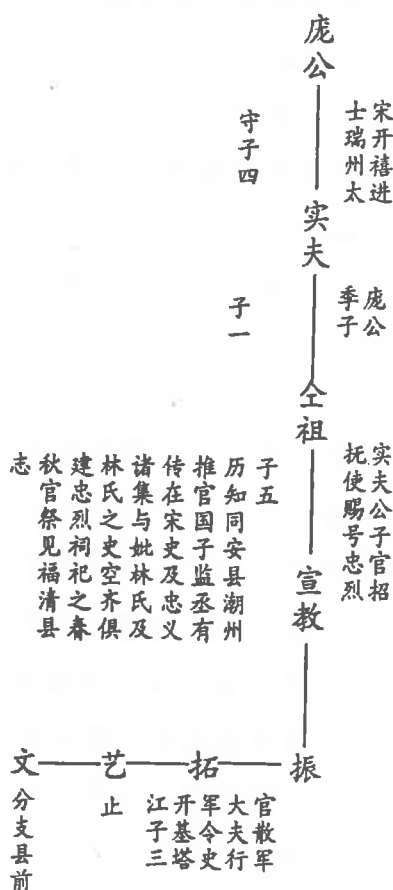 庞公
宋开禧进
士瑞州太
守子四
实夫
庞公
季子
子一
仝祖
实夫公子官招
抚使赐号忠烈
子五
历知同安县潮州
推官国子监丞有
传在宋史及忠义
诸集与妣林氏及
林氏之史空齐俱
建忠烈祠祀之春
秋官祭见福清县
志
宣教
振
官散军
大夫行
军令史
开基塔
江子三
拓
艺
止
文
分支县前